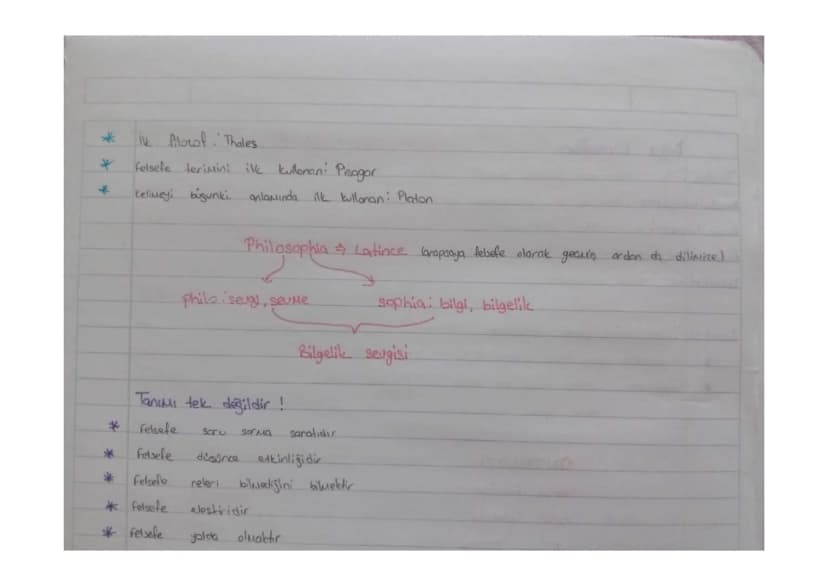 * ilk filozof : Thales
* Felsefe terimini ilk kullanan : Pisagor
* kelimeyi bugünki anlamında ilk kullanan : Platon
Philosophia ⇒ Latince (arapçaya felsefe olarak geçmiş ardan da dilimize)
philo : sevgi, sevme sophia : bilgi, bilgelik
Bilgelik sevgisi
Tanımı tek değildir !
* Felsefe soru sorma sanatıdır
* Felsefe düşünce etkinliğidir
* Felsefe neleri bilmediğini bilmektir
* Felsefe eleştiridir
* Felsefe yolda olmaktır